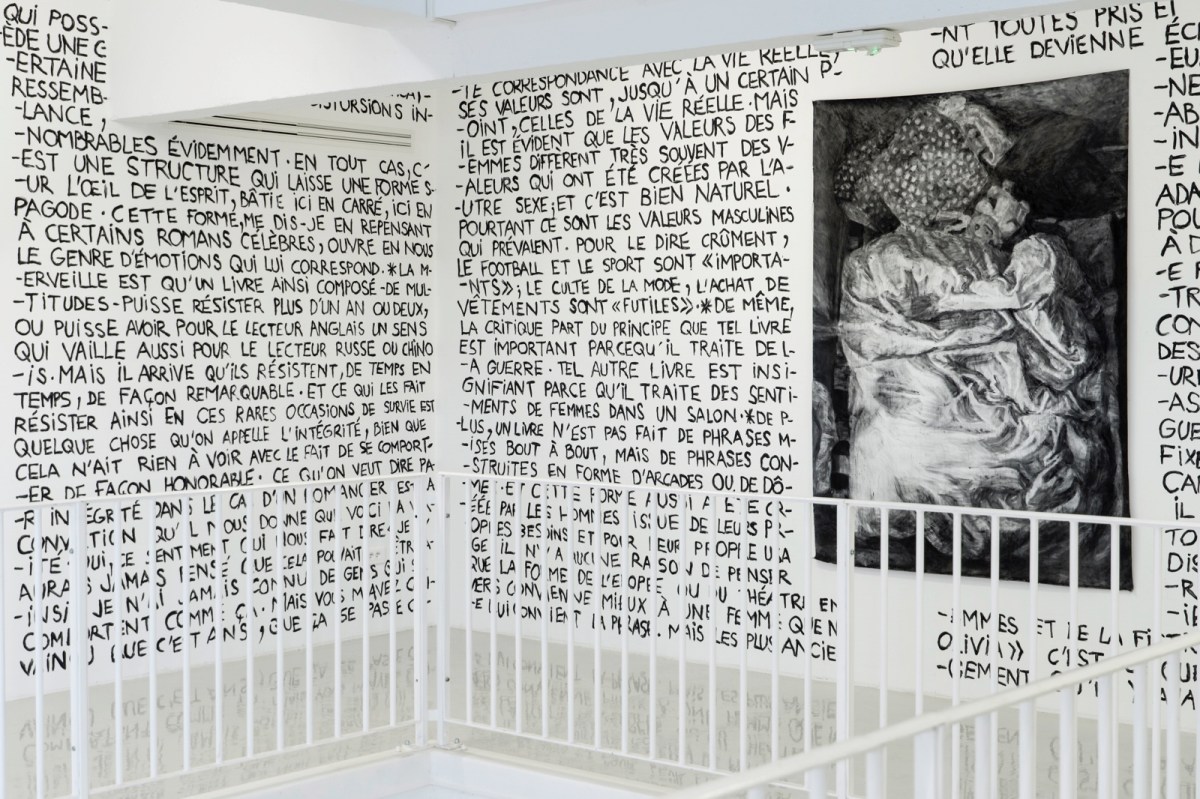 QUI POSS-
-ÈDE UNE C-
-ERTAINE
RESSEMB-
-LANCE,
DISTURSIONS IN-
-NOMBRABLES ÉVIDEMMENT. EN TOUT CAS, C'-
-EST UNE STRUCTURE QUI LAISSE UNE FORME S-
-UR L'ŒIL DE L'ESPRIT, BÂTIE ICI EN CARRÉ, ICI EN
PAGODE. CETTE FORME, ME DIS-JE EN REPENSANT
À CERTAINS ROMANS CÉLÈBRES, OUVRE EN NOUS
LE GENRE D'ÉMOTIONS QUI LUI CORRESPOND. *LA M-
-ERVEILLE EST QU'UN LIVRE AINSI COMPOSÉ-DE MUL-
-TITUDES-PUISSE RÉSISTER PLUS D'UN AN OU DEUX,
OU PUISSE AVOIR POUR LE LECTEUR ANGLAIS UN SENS
QUI VAILLE AUSSI POUR LE LECTEUR RUSSE OU CHINO
-IS. MAIS IL ARRIVE QU'ILS RÉSISTENT, DE TEMPS EN
TEMPS, DE FAÇON REMARQUABLE. ET CE QUI LES FAIT
RÉSISTER AINSI EN CES RARES OCCASIONS DE SURVIE EST
QUELQUE CHOSE QU'ON APPELLE L'INTÉGRITÉ, BIEN QUE
CELA N'AIT RIEN À VOIR AVEC LE FAIT DE SE COMPORT-
-ER DE FAÇON HONORABLE. CE QU'ON VEUT DIRE PA-
-R INTÉGRITÉ DANS LE CAS D'UN ROMANCIER EST LA
CONVICTION QU'IL NOUS DONNE QUE VOICI LA V-
-ITÉ. OUI, CE SENTIMENT QUI NOUS FAIT DIRE «JE N'
AURAIS JAMAIS PENSÉ QUE CELA POUVAIT ÊTRE A-
-INSI. JE N'AI JAMAIS CONNU DE GENS QUI SE
COMPORTENT COMME ÇA. MAIS VOUS M'AVEZ CON-
VAINCU QUE C'EST AINSI, QUE ÇA SE PASSE C-
-TE CORRESPONDANCE AVEC LA VIE RÉELLE,
SES VALEURS SONT, JUSQU'À UN CERTAIN P-
-OINT, CELLES DE LA VIE RÉELLE. MAIS
IL EST ÉVIDENT QUE LES VALEURS DES F-
-EMMES DIFFÈRENT TRÈS SOUVENT DES V-
-ALEURS QUI ONT ÉTÉ CRÉÉES PAR L'A-
-UTRE SEXE; ET C'EST BIEN NATUREL.
POURTANT CE SONT LES VALEURS MASCULINES
QUI PRÉVALENT. POUR LE DIRE CRÛMENT,
LE FOOTBALL ET LE SPORT SONT «IMPORTA-
-NTS»; LE CULTE DE LA MODE, L'ACHAT DE
VÊTEMENTS SONT «FUTILES». *DE MÊME,
LA CRITIQUE PART DU PRINCIPE QUE TEL LIVRE
EST IMPORTANT PARCEQU'IL TRAITE DE L-
-A GUERRE. TEL AUTRE LIVRE EST INSI-
GNIFIANT PARCE QU'IL TRAITE DES SENTI-
-MENTS DE FEMMES DANS UN SALON. *DE P-
LUS, UN LIVRE N'EST PAS FAIT DE PHRASES M-
-ISES BOUT À BOUT, MAIS DE PHRASES CON-
-STRUITES EN FORME D'ARCADES OU DE DÔ-
-ME. ET CETTE FORME AUSSI A ÉTÉ CR-
-ÉÉE PAR LES HOMMES ISSUE DE LEURS PR-
-OPRES BESOINS ET POUR LEUR PROPRE USA
GE. IL N'Y A AUCUNE RAISON DE PENSER
QUE LA FORME DE L'ÉPOPÉE OU DU THÉÂTRE EN
VERS CONVIENNE MIEUX À UNE FEMME QUE N
-E LUI CONVIENT LA PHRASE. MAIS LES PLUS ANCIE
-NT TOUTES PRIS ET
QU'ELLE DEVIENNE
-EMMES ET DE LA FI
OLIVIA» C'EST
-GEMENT
ÉC
-EU
-NE
AB
-IN
-E
ADA
POU
À
-E
-TR
CON
DES
-UR
-AS
GUE
FIX
ÇA
IL
TO
DIS
-R
-IE